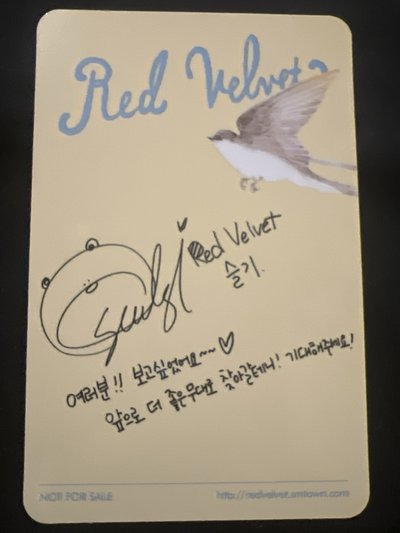 Red Velvet
Seulgi
Red Velvet
슬기.
여러분!! 보고싶었어요~~♡
앞으로 더 좋은무대로 찾아갈테니! 기대해주세요!
NOT FOR SALE
http://redvelvet.smtown.com